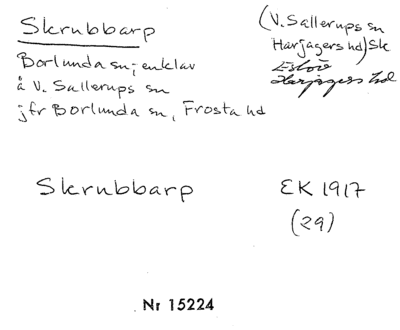 Skrubbarp
(V. Sallerups sn
Harjagers hd) Sk
Eslöv
Harjagers hd
Borlunda sn; enklav
å V. Sallerups sn
jfr Borlunda sn, Frosta hd
Skrubbarp
EK 1917
(29)
Nr 15224